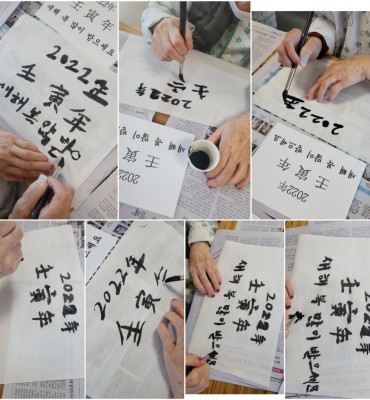 壬寅年
새해 복 많이 받으세요
2022年
壬寅年
2022年
2022年
壬寅年
새해 복 많이 받으세요
2022年
2022年
壬寅年
새해 복 많이 받으세요
2022年
壬寅年
2022年
壬寅
2022年
壬寅年
새해 복 많이 받으세요
2022年
壬寅年
새해 복 많이 받으세요